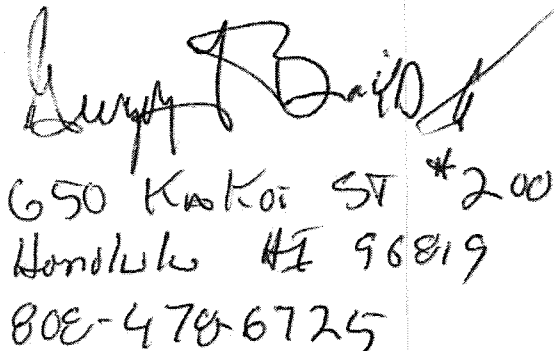 650 Kakoi ST #200
Honolulu HI 96819
808-478-6725